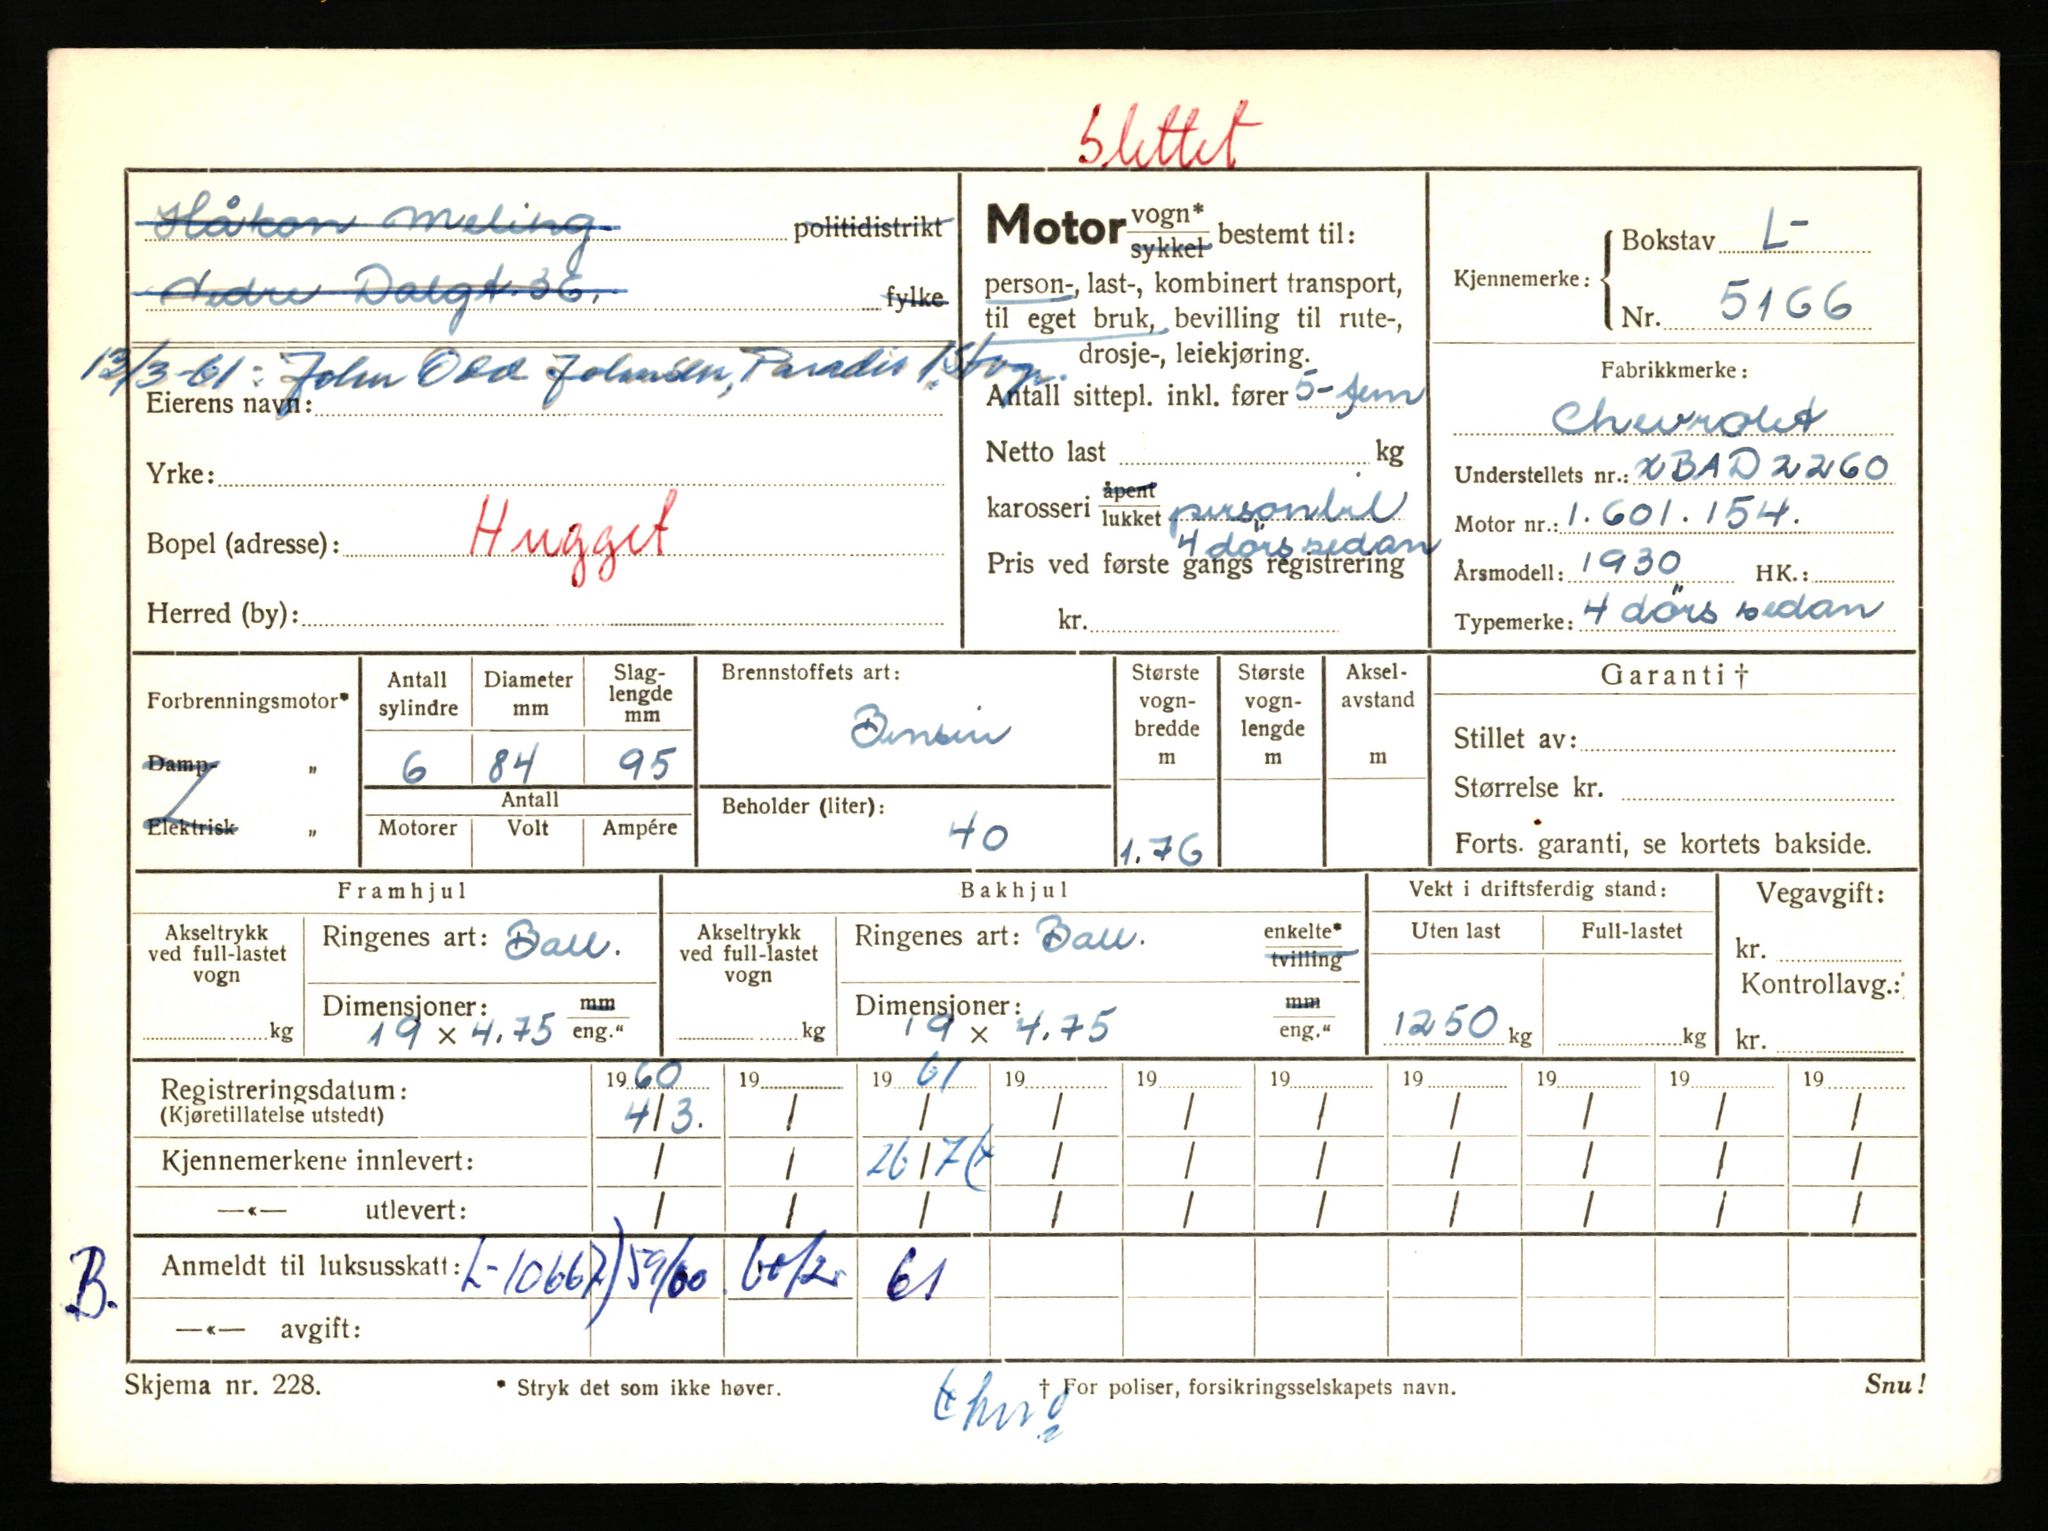 Slettet
Håkon Meling politidistrikt
Nedre Dalgt. 36. fylke
13/3-61: John Odd Johnsen, Paradis 1, Stvgr.
Eierens navn:
Yrke:
Bopel (adresse): Hugget
Herred (by):
Motor vogn* sykkel bestemt til:
person-, last-, kombinert transport,
til eget bruk, bevilling til rute-,
drosje-, leiekjøring.
Antall sittepl. inkl. fører 5-fem
Netto last kg
karosseri åpent lukket personbil
4 dörs sedan
Pris ved første gangs registrering
kr.
Kjennemerke: Bokstav L-
Nr. 5166
Fabrikkmerke:
Chevrolet
Understellets nr.: XBAD2260
Motor nr.: 1.601.154.
Årsmodell: 1930 HK.:
Typemerke: 4 dörs sedan
Forbrenningsmotor*
Damp- „
Elektrisk „
Antall sylindre Diameter mm Slag-lengde mm
6 84 95
Antall
Motorer Volt Ampére
Brennstoffets art:
Bensin
Beholder (liter):
40
Største vogn-bredde m
1.76
Største vogn-lengde m
Aksel-avstand m
Garanti †
Stillet av:
Størrelse kr.
Forts. garanti, se kortets bakside.
Framhjul
Akseltrykk ved full-lastet vogn
kg
Ringenes art: Ball.
Dimensjoner: mm
19 x 4.75 eng."
Bakhjul
Akseltrykk ved full-lastet vogn
kg
Ringenes art: Ball. enkelte* tvilling
Dimensjoner: mm
19 x 4.75 eng."
Vekt i driftsferdig stand:
Uten last Full-lastet
1250 kg kg
Vegavgift:
kr.
Kontrollavg.:
kr.
Registreringsdatum: 1960 19 1961 19 19 19 19 19 19 19
(Kjøretillatelse utstedt) 4/3. / / / / / / / / /
Kjennemerkene innlevert: / / 26/7 / / / / / / /
—«— utlevert: / / / / / / / / / /
B. Anmeldt til luksusskatt: L-10667) 59/60 60/2 61
—«— avgift:
Skjema nr. 228. * Stryk det som ikke høver. † For poliser, forsikringsselskapets navn. Snu!